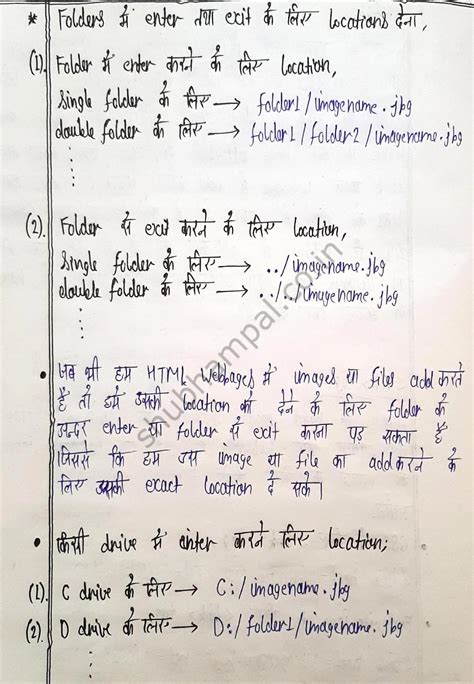 * Folders में enter तथा exit के लिए locations देना,
(1). Folder में enter करने के लिए location,
single folder के लिए → folder1/imagename.jbg
double folder के लिए → folder1/folder2/imagename.jbg
(2). Folder से exit करने के लिए location,
single folder के लिए → ../imagename.jbg
double folder के लिए → ../../imagename.jbg
• जब भी हम HTML Webpages में images या files add करते
हैं तो हमें उसकी location को देने के लिए folder के
अन्दर enter या folder से exit करना पड़ सकता है
जिससे कि हम उस image या file का add करने के
लिए उसकी exact location दे सकें।
• किसी drive में enter करने लिए location;
(1). C drive के लिए → C:/imagename.jbg
(2). D drive के लिए → D:/folder1/imagename.jbg
shubhampal.co.in